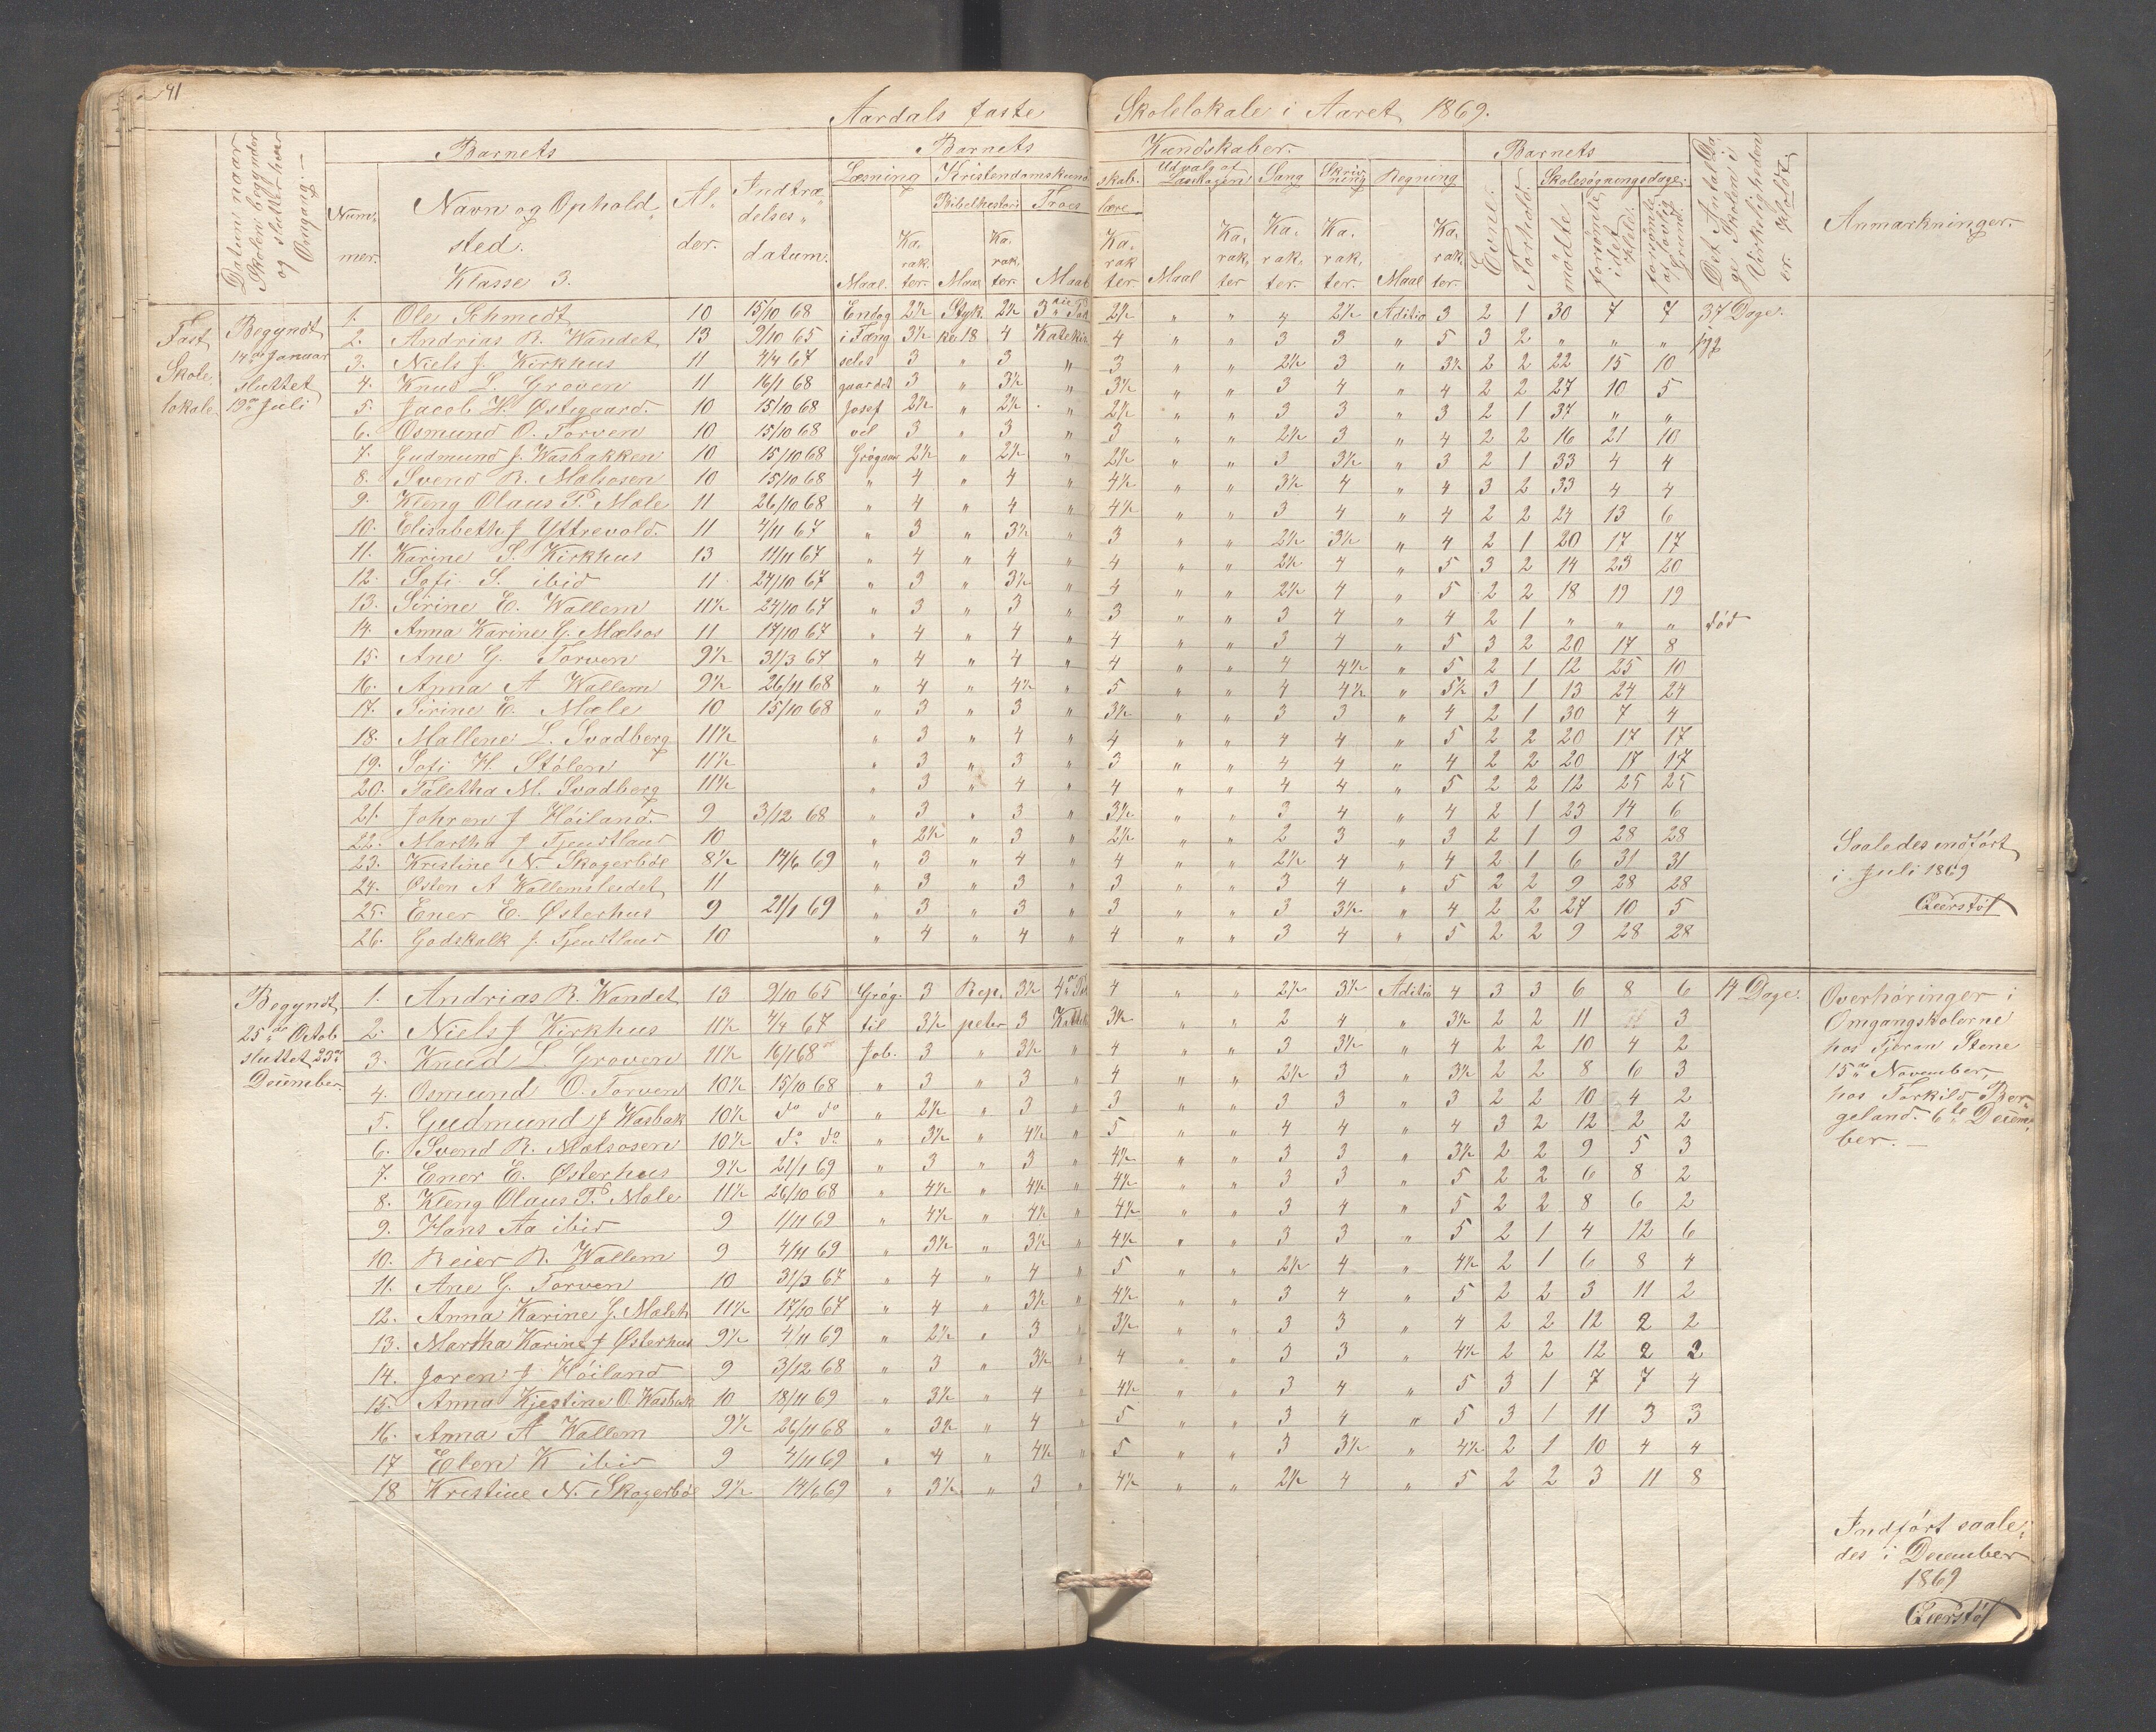 41
Aardals faste Skolelokale i Aaret 1869.
Datum naar Skolen begynder og slutter hver Omgang.
Barnets
Barnets Kundskaber.
Barnets
Det Antal Dage Skolen i Virkeligheden er holdt.
Anmærkninger.
Nummer.
Navn og Opholdsted.
Klasse 3.
Alder.
Indtrædelsesdatum.
Læsning
Kristendomskundskab.
Udvalg af Læsebogen
Sang
Skrivning
Regning
Evne.
Forhold.
Skolesøgningsdage.
Bibelhistori
Troeslære
mødte
forsømte i det Hele.
forsømte af lovlig Grund.
Maal. Karakter. Maal Karakter. Maal Karakter Maal Karakter Karakter. Karakter. Maal Karakter.
Fast Skolelokale.
Begyndt 14de Januar sluttet 19de Juli
1. Ole Schmidt 10 15/10 68 Endog 2½ Styk 2½ 3die Part 2½ " " 4 2½ Aditio 3 2 1 30 7 7 37 Dage.
2. Andrias R. Wandet 13 9/10 65 i Fæng 3½ ke 18 4 Katekis 4 " " 3 3 " 5 3 2 " " "
3. Niels J. Kirkhus 11 4/4 67 selet 3 " 3 " 3 " " 2½ 3 " 3½ 2 2 22 15 10
4. Knud L. Groven 11 16/1 68 gaardet 3 " 3½ " 3½ " " 3 4 " 4 2 2 27 10 5
5. Jacob H. Østigaard. 10 15/10 68 Josef 2½ " 2½ " 2½ " " 3 3 " 3 2 1 37 " "
6. Osmund O. Torven 10 15/10 68 vel 3 " 3 " 3 " " 2½ 3 " 4 2 2 16 21 10
7. Gudmund J. Wasbakken 10 15/10 68 2½ " 2½ " 2½ " " 3 3½ " 3 2 1 33 4 4
8. Svend R. Mælsosen 10 15/10 68 " 4 " 4 " 4½ " " 3½ 4 " 4 3 2 33 4 4
9. Kleng Olaus P. Mæle 11 26/10 68 " 4 " 4 " 4½ " " 3 4 " 4 2 2 24 13 6
10. Elisabeth J Yttrevold. 11 4/11 67 " 3 " 3½ " 3 " " 2½ 3½ " 4 2 1 20 17 17
11. Karine S. Kirkhus 13 11/11 67 " 4 " 4 " 4 " " 2½ 4 " 5 3 2 14 23 20
12. Sofi S. ibid 11 27/10 67 " 3 " 3½ " 4 " " 2½ 4 " 5 2 2 18 19 19
13. Sirine E. Wallem 11½ 24/10 67 " 3 " 3 " 3 " " 3 4 " 4 2 1 " " " død
14. Anna Karine G. Mælsos 11 17/10 67 " 4 " 4 " 4 " " 3 4 " 5 3 2 20 17 8
15. Ane G. Torven 9½ 31/3 67 " 4 " 4 " 4 " " 4 4½ " 5 2 1 12 25 10
16. Anna A Wallem 9½ 26/11 68 " 4 " 4½ " 5 " " 4 4½ " 5½ 3 1 13 24 24
17. Sirine E. Mæle 10 15/10 68 " 3 " 3 " 3½ " " 3 3 " 4 2 1 30 7 4
18. Mallene L. Svadberg 11½ " 3 " 4 " 4 " " 4 4 " 5 2 2 20 17 17
19. Sofi H. Stölen 11½ " 3 " 3 " 3 " " 4 4 " 4 2 2 20 17 17
20. Taletha M. Svadberg 11½ " 3 " 4 " 4 " " 4 4 " 5 2 2 12 25 25
21. Johren J Höiland 9 3/12 68 " 3 " 3 " 3½ " " 3 4 " 4 2 1 23 14 6
22. Martha J Tjentland 10 " 2½ " 3 " 2½ " " 2 3 " 3 2 1 9 28 28
23. Kristine N. Skogerböe 8½ 14/6 69 " 3 " 4 " 4 " " 2½ 4 " 4 2 1 6 31 31
24. Østen A Wallemsleidet 11 " 3 " 3 " 3 " " 3 4 " 5 2 2 9 28 28
25. Ener E. Østerhus 9 21/1 69 " 3 " 3 " 3 " " 3 3½ " 4 2 2 27 10 5
26. Godskalk J. Tjentland 10 " 4 " 4 " 4 " " 3 4 " 5 2 2 9 28 28
Saaledes indfört
i Juli 1869
Begyndt 25de Octob sluttet 23de December.
1. Andrias R. Wandet 13 9/10 65 Grög. 3 Rep. 3½ 4de 4 " " 2½ 3½ Aditio 4 3 3 6 8 6 14 Dage.
2. Niels J Kirkhus 11½ 4/4 67 til 3½ peter 3 3½ " " 2 4 " 3½ 2 2 11 3
3. Knud L Groven 11½ 16/1 68 Job. 3 " 3½ " 4 " " 3 3½ " 4 2 2 10 4 2
4. Osmund O. Torven 10½ 15/10 68 " 3 " 3 " 4 " " 2½ 3 " 3½ 2 2 8 6 3
5. Gudmund J Wasbak 10½ do do " 2½ " 3 " 3 " " 3 3 " 3 2 2 10 4 2
6. Svend R. Mælsosen 10½ do do " 3½ " 4½ " 5 " " 4 4 " 4 3 2 12 2 2
7. Ener E. Østerhus 9½ 21/1 69 " 3 " 3 " 4½ " " 3 3 " 3½ 2 2 9 5 3
8. Kleng Olaus P. Mæle 11½ 26/10 68 " 4½ " 4½ " 4½ " " 3 3 " 5 2 2 6 8 2
9. Hans Aa ibid 9 1/11 69 " 4½ " 4½ " 4½ " " 3 4 " 5 2 2 8 6 2
10. Reier R. Wallem 9 4/11 69 " 3½ " 3½ " 4½ " " 3 3 " 5 2 1 4 12 6
11. Ane G. Torven 10 31/3 67 " 4 " 4 " 5 " " 2½ 4 " 4½ 2 1 6 8 4
12. Anna Karine G. 11½ 17/10 67 " 4 " 3½ " 4½ " " 3 4 " 5 2 2 3 11 2
13. Martha Karine J Østerhus 9½ 4/11 69 " 2½ " 3 " 3½ " " 3 3 " 4 2 2 12 2 2
14. Joren J. Höiland 9 3/12 68 " 3 " 3½ " 4 " " 3 3 " 4½ 2 2 12 2 2
15. Anna Kjestine O. Wasbak 10 18/11 69 " 3½ " 4 " 4½ " " 3 4 " 5 3 1 7 7 4
16. Anna A Wallem 9½ 26/11 68 " 3½ " 4 " 5 " " 3 4 " 5 3 1 11 3 3
17 Elen K ibid 9 4/11 69 " 4 " 4½ " 5 " " 3 3½ " 4½ 2 1 10 4 4
18 Kristine N. Skogerböe 9½ 14/6 69 " 3½ " 3 " 4½ " " 2½ 4 " 5 2 2 3 11 8
Overhøringer i
Omgangskolerne
hos Tjeran Stene
15de November,
hos Torkild Bergeland.
6te December.
Indfört saaledes
i December
1869